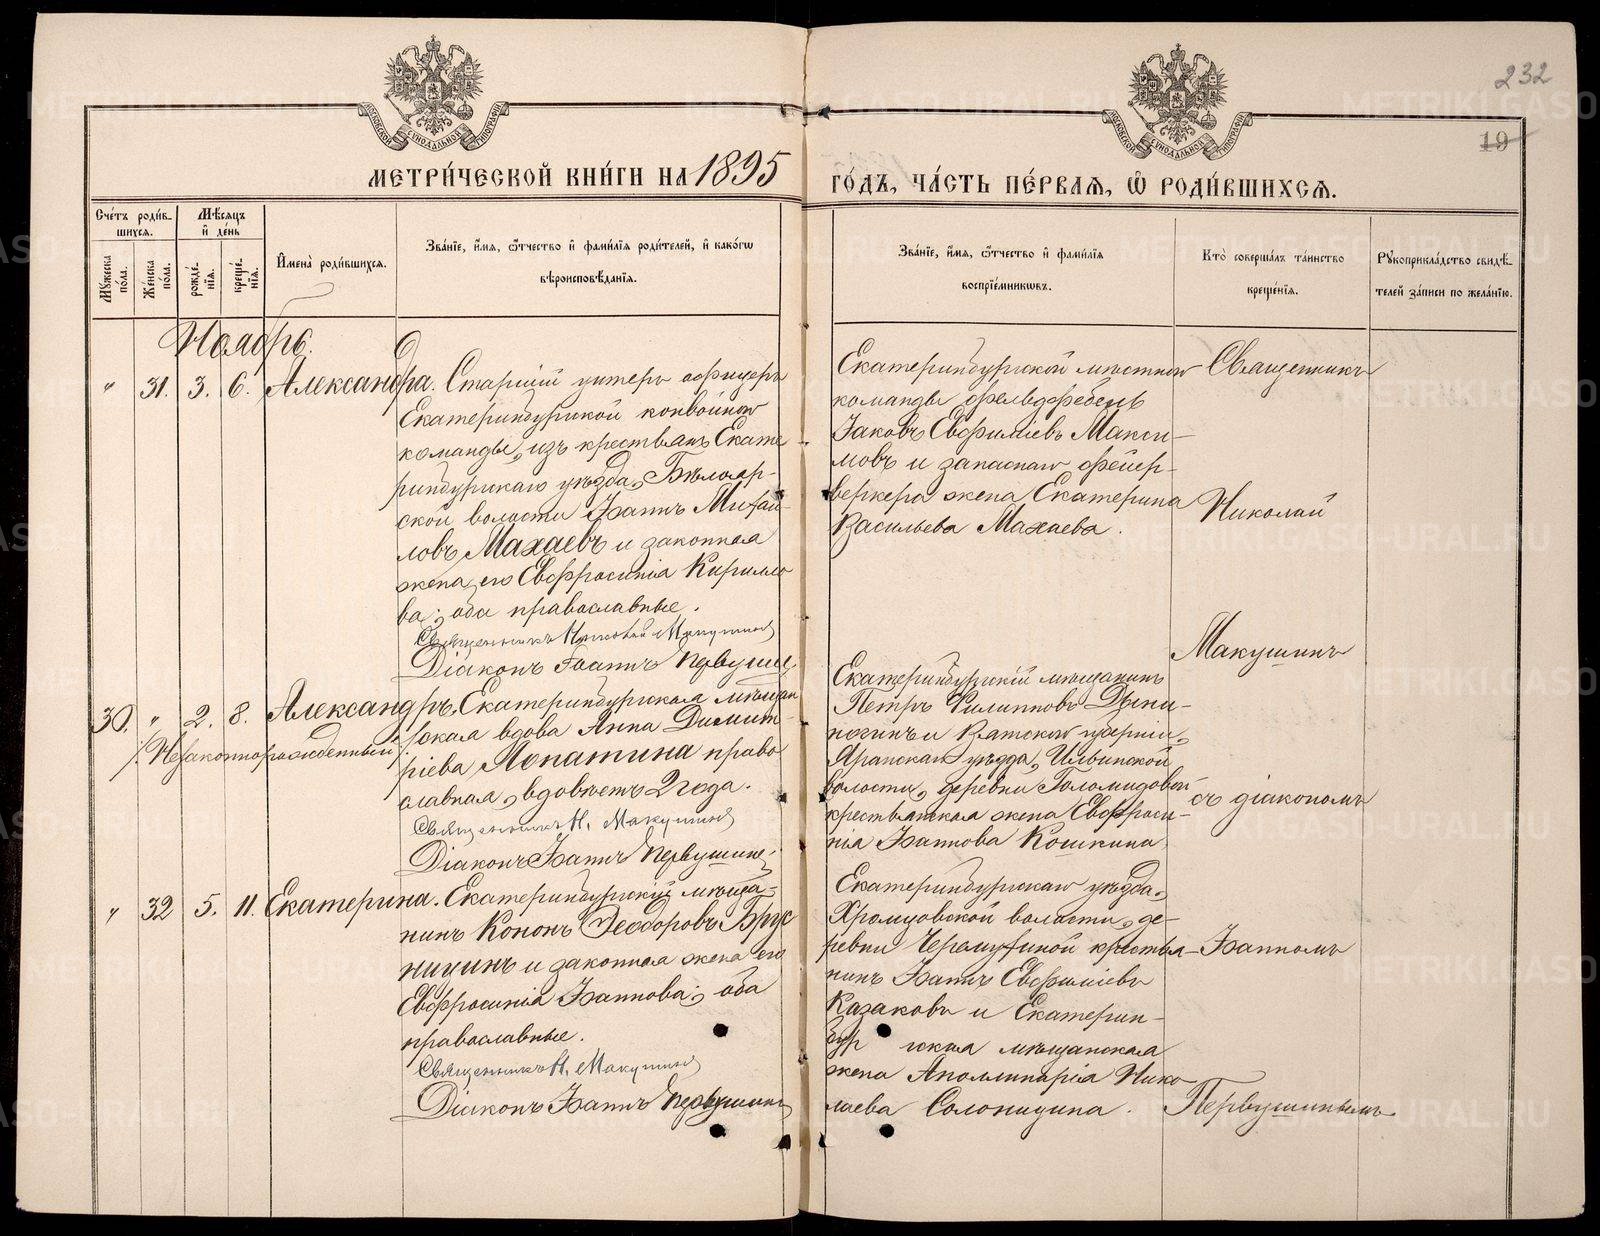 232
19
МОСКОВСКОЙ СѴНОДАЛЬНОЙ ТИПОГРАФІИ
МОСКОВСКОЙ СѴНОДАЛЬНОЙ ТИПОГРАФІИ
МЕТРИ́ЧЕСКОЙ КНИ́ГИ НА 1895
ГО́ДЪ, ЧА́СТЬ ПЕ́РВАЯ, Ѿ РОДИ́ВШИХСЯ.
Сче́тъ роди́в-
шихся.
Мꙋ́жеска по́ла.
Же́нска по́ла.
Мѣ́сяцъ
и де́нь
рожде́-
нїя.
креще́-
нїя.
Имена̀ роди́вшихся.
Зва́нїе, и́мя, ѻ́тчество и фами́лїя роди́телей, и како́гѡ
вѣроисповѣ́данїя.
Зва́нїе, и́мя, ѻ́тчество и фами́лїя
воспрїе́мникѡвъ.
Кто̀ соверша́лъ та́инство
креще́нїя.
Рꙋкоприкла́дство свидѣ́-
телей за́писи по жела́нїю.
Ноябрь.
" 31. 3. 6. Александра. Старшій унтеръ офицеръ
Екатеринбургской конвойной
команды, изъ крестьянъ Екате
ринбургскаго уѣзда, Бѣлояр-
ской волости Іоаннъ Михай-
ловъ Махаевъ и законная
жена его Евфросинія Кирилло
ва; оба православные.
Священникъ Николай Макушинъ
Діаконъ Іоаннъ Первушинъ
Екатеринбургской мѣстной
команды фельдфебель
Іаковъ Евфиміевъ Макси-
мовъ и запаснаго фейер-
веркера жена Екатерина
Васильева Махаева.
Священникъ
Николай
Макушинъ
30. " 2. 8. Александръ. Екатеринбургская мѣщан
(Незаконнорожденный)
ская вдова Анна Димит-
ріева Лопатина право
славная, вдовѣетъ 2 года.
Священникъ Н. Макушинъ
Діаконъ Іоаннъ Первушинъ
Екатеринбургскій мѣщанинъ
Петръ Филипповъ
и Вятской губерніи,
Яранскаго уѣзда,
волости, деревни
крестьянская жена Евфроси-
нія Іоаннова Кошкина
съ діакономъ
" 32 5. 11. Екатерина. Екатеринбургскій мѣща-
нинъ Кононъ Ѳеодоровъ Брус
ницинъ и законная жена его
Евфросинія Іоаннова; оба
православные.
Священникъ Н. Макушинъ
Діаконъ Іоаннъ Первушинъ
Екатеринбургскаго уѣзда,
Хромцовской волости, де-
ревни Черемухиной крестья-
нинъ Іоаннъ Евфиміевъ
Казаковъ и Екатерин-
бургская мѣщанская
жена Аполлинарія Нико-
лаева Солоницина.
Іоанномъ
Первушинымъ